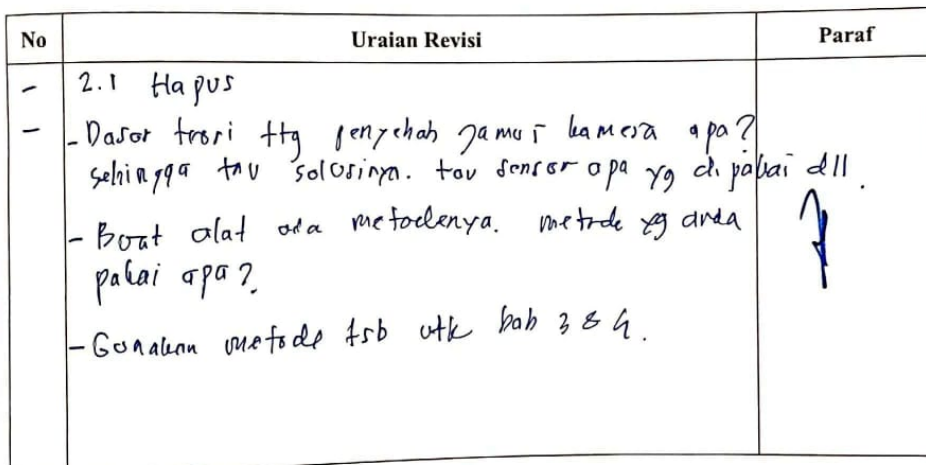 No Uraian Revisi Paraf
- 2.1 Hapus
- - Dasar teori ttg penyebab jamur kamera apa?
sehingga tau solusinya. tau sensor apa yg dipakai dll.
- Buat alat ada metodenya. metode yg anda
pakai apa?
- Gunakan metode tsb utk bab 3 & 4.